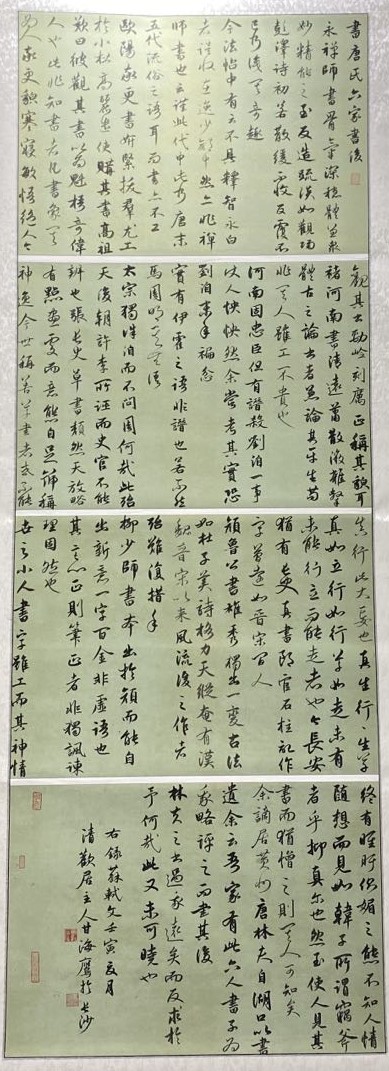 書唐氏六家書後
永禪師書骨氣深穩體並衆
妙精能之至反造疏淡如觀陶
彭澤詩初若散緩不收反覆不
已乃識其奇趣
今法帖中有云不具釋智永白
者誤收在逸少部中然亦非禪
師書也云謹此代申此乃唐末
五代流俗之語耳而書亦不工
歐陽率更書妍緊拔羣尤工
於小楷高麗遣使購其書高祖
歎曰彼觀其書以爲魁梧奇偉
人也此非知書者凡書象其
爲人率更貌寒寢敏悟絕人今
觀其書勁險刻厲正稱其貌耳
褚河南書清遠蕭散微雜隸
體古之論書者兼論其平生苟
非其人雖工不貴也
河南固忠臣但有譖殺劉洎一事
使人怏怏然余嘗考其實恐
劉洎末年褊忿
實有伊霍之語非譖也若不然
馬周明其無此語
太宗獨誅洎而不問周何哉此殆
天后朝許李所誣而史官不能
辨也張長史草書頹然天放略
有點畫處而意態自足號稱
神逸今世稱善草書者或不能
真行此大妄也真生行行生草
真如立行如行草如走未有
未能行立而能走者也今長安
猶有長史真書郎官石柱記作
字簡遠如晉宋間人
顏魯公書雄秀獨出一變古法
如杜子美詩格力天縱奄有漢
魏晉宋以來風流後之作者
殆難復措手
柳少師書本出於顏而能自
出新意一字百金非虛語也
其言心正則筆正者非獨諷諫
理固然也
世之小人書字雖工而其神情
終有睢盱側媚之態不知人情
隨想而見如韓子所謂竊斧
者乎抑真尔也然至使人見其
書而猶憎之則其人可知矣
余謫居黃州唐林夫自湖口以書
遺余云吾家有此六人書子爲
我略評之而書其後
林夫之書過我遠矣而反求於
予何哉此又未可曉也
右錄蘇軾文壬寅夏月
清歡居主人甘海鷹於長沙